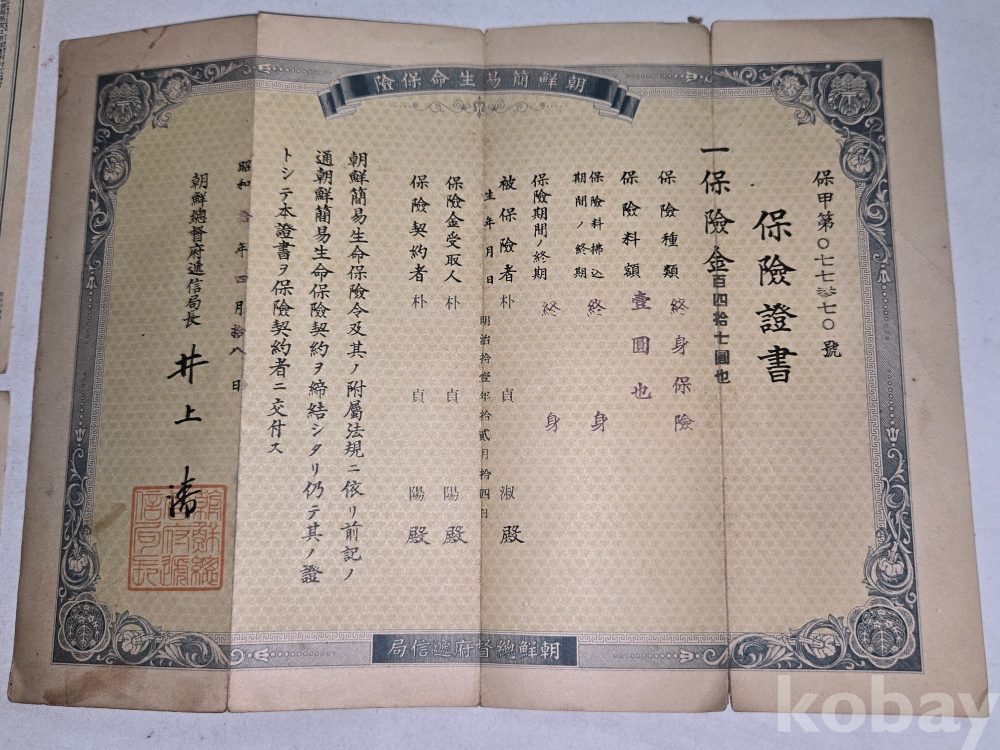 朝鮮簡易生命保險
保甲第〇七七参七〇號
保險證書
一保險金百四拾七圓也
保險種類 終身保險
保險料額 壹圓也
保險料拂込期間ノ終期 終身
保險期間ノ終期 終身
被保險者 朴貞淑殿
生年月日 明治拾壹年拾貳月拾四日
保險金受取人 朴貞陽殿
保險契約者 朴貞陽殿
朝鮮簡易生命保險令及其ノ附屬法規ニ依リ前記ノ
通朝鮮簡易生命保險契約ヲ締結シタリ仍テ其ノ證
トシテ本證書ヲ保險契約者ニ交付ス
昭和拾年四月拾八日
朝鮮總督府遞信局長 井上清
朝鮮總督府遞信局
kobay